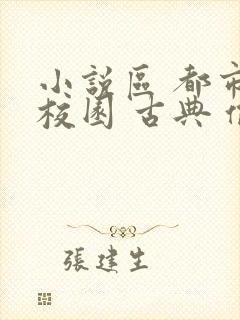 小說區 都市
校園 古典
張建生